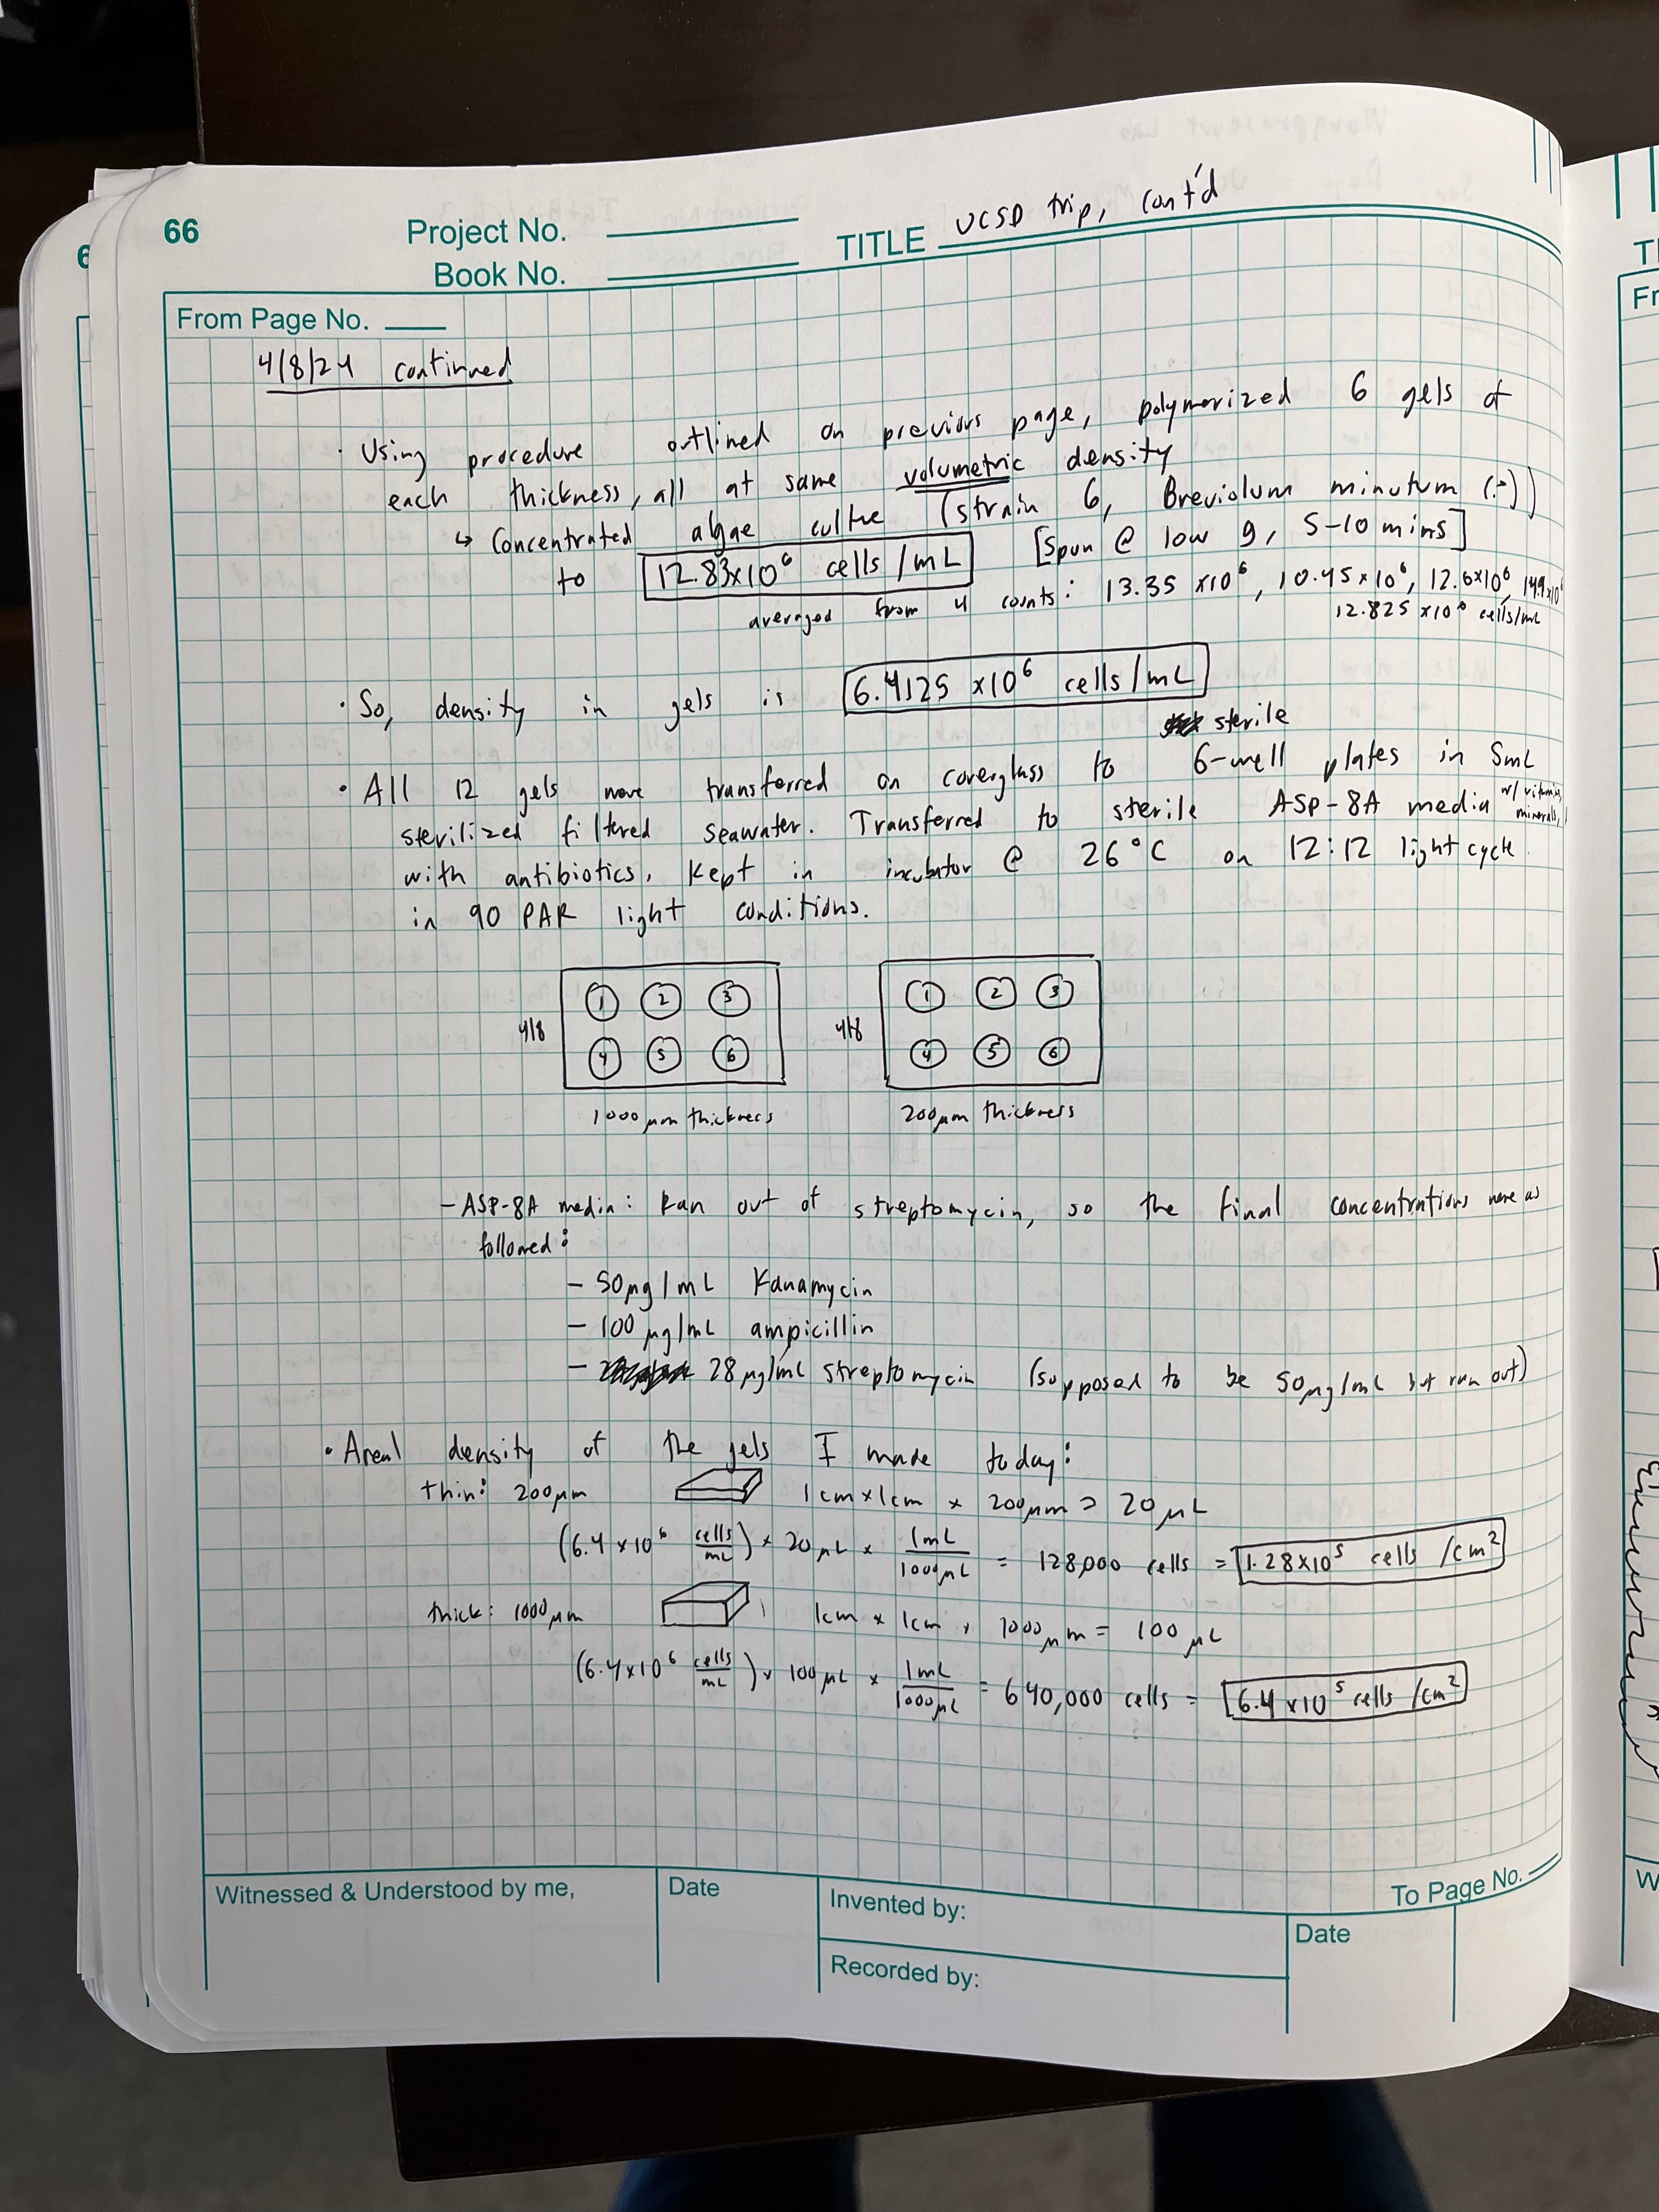 66
Project No.
Book No.
TITLE UCSD trip, cont'd
From Page No.
4/8/24 continued
· Using procedure outlined on previous page, polymerized 6 gels of
each thickness, all at same volumetric density
↳ Concentrated algae cultre (strain 6, Breviolum minutum (:-))
to 12.83x10⁶ cells/mL [Spun @ low g, 5-10 mins]
averaged from 4 counts: 13.35 x10⁶, 10.45x10⁶, 12.6x10⁶, 14.9x10⁶
12.825 x10⁶ cells/mL
· So, density in gels is 6.4125 x10⁶ cells/mL
sterile
· All 12 gels were transferred on coverglass to 6-well plates in 5mL
sterilized filtered seawater. Transferred to sterile ASP-8A media w/ vitamins, minerals,
with antibiotics. Kept in incubator @ 26°C on 12:12 light cycle
in 90 PAR light conditions.
4/8 1 2 3 4 5 6
4/8 1 2 3 4 5 6
1000 μm thickness
200μm thickness
- ASP-8A media: Ran out of streptomycin, so the final concentrations were as
followed:
- 50μg/mL Kanamycin
- 100 μg/mL ampicillin
- 28 μg/mL streptomycin (supposed to be 50μg/mL but ran out)
· Areal density of the gels I made today:
thin: 200μm 1cm x 1cm x 200μm = 20 μL
(6.4 x 10⁶ cells/mL) x 20 μL x 1mL/1000μL = 128,000 cells = 1.28x10⁵ cells /cm²
thick: 1000μm 1cm x 1cm x 1000μm = 100 μL
(6.4x10⁶ cells/mL) x 100μL x 1mL/1000μL = 640,000 cells = 6.4 x10⁵ cells /cm²
To Page No.
Witnessed & Understood by me,
Date
Invented by:
Date
Recorded by: